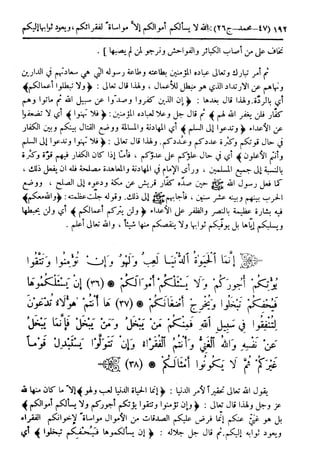 ١٩٢ (٤٧-محمد-ج٢٦) : الله لا يسألكم أموالكم إلا مواساة لفقرائكم، ويعود ثوابها إليكم
نخاف على من أصاب الكبائر والفواحش ونرجو لمن لم يصبها ] .
ثم أمر تبارك وتعالى عباده المؤمنين بطاعته وطاعة رسوله التي هي سعادتهم في الدارين
ونهاهم عن الارتداد الذي هو مبطل للأعمال ، ولهذا قال تعالى : ﴿ ولا تبطلوا أعمالكم ﴾
أي بالردة. ولهذا قال بعدها : ﴿ إن الذين كفروا وصدوا عن سبيل الله ثم ماتوا وهم
كفار فلن يغفر الله لهم ﴾ ثم قال جل وعلا لعباده المؤمنين : ﴿ فلا تهنوا ﴾ أي لا تضعفوا
عن الأعداء ﴿ وتدعوا إلى السلم ﴾ أي المهادنة والمسالمة ووضع القتال بينكم وبين الكفار
في حال قوتكم وكثرة عددكم وعددكم. ولهذا قال تعالى: ﴿ فلا تهنوا وتدعوا إلى السلم
وأنتم الأعلون ﴾ أي في حال علوكم على عدوكم ، فأما إذا كان الكفار فيهم قوة وكثرة
بالنسبة إلى جميع المسلمين ، ورأى الإمام في المهادنة والمعاهدة مصلحة فله أن يفعل ذلك ،
كما فعل رسول الله ﷺ حين صده كفار قريش عن مكة ودعوه إلى الصلح ، ووضع
الحرب بينهم وبينه عشر سنين ، فأجابهم ﷺ إلى ذلك. وقوله جلت عظمته: ﴿ والله معكم ﴾
فيه بشارة عظيمة بالنصر والظفر على الأعداء ﴿ ولن يتركم أعمالكم ﴾ أي ولن يحبطها
ويسلبكم إياها بل يوفيكم ثوابها ولا ينقصكم منها شيئاً ، والله تعالى أعلم .
إِنَّمَا ٱلْحَيَوٰةُ ٱلدُّنْيَا لَعِبٌ وَلَهْوٌ وَإِن تُؤْمِنُوا وَتَتَّقُوا
يُؤْتِكُمْ أُجُورَكُمْ وَلَا يَسْـَٔلْكُمْ أَمْوَٰلَكُمْ (٣٦) إِن يَسْـَٔلْكُمُوهَا
فَيُحْفِكُمْ تَبْخَلُوا وَيُخْرِجْ أَضْغَٰنَكُمْ (٣٧) هَٰٓأَنتُمْ هَٰٓؤُلَآءِ تُدْعَوْنَ
لِتُنفِقُوا فِى سَبِيلِ ٱللَّهِ فَمِنكُم مَّن يَبْخَلُ وَمَن يَبْخَلْ فَإِنَّمَا يَبْخَلُ
عَن نَّفْسِهِ وَٱللَّهُ ٱلْغَنِىُّ وَأَنتُمُ ٱلْفُقَرَآءُ وَإِن تَتَوَلَّوْا يَسْتَبْدِلْ قَوْمًا
غَيْرَكُمْ ثُمَّ لَا يَكُونُوا أَمْثَٰلَكُم (٣٨)
يقول الله تعالى تحقيراً لأمر الدنيا : ﴿ إنما الحياة الدنيا لعب ولهو ﴾ إلا ما كان منها لله
عز وجل ولهذا قال تعالى : ﴿ وإن تؤمنوا وتتقوا يؤتكم أجوركم ولا يسألكم أموالكم ﴾
بل هو غني عنكم إنما فرض عليكم الصدقات من الأموال مواساة لإخوانكم الفقراء
ويعود ثوابه إليكم. ثم قال جل جلاله : ﴿ إن يسألكموها فيحفكم تبخلوا ﴾ أي